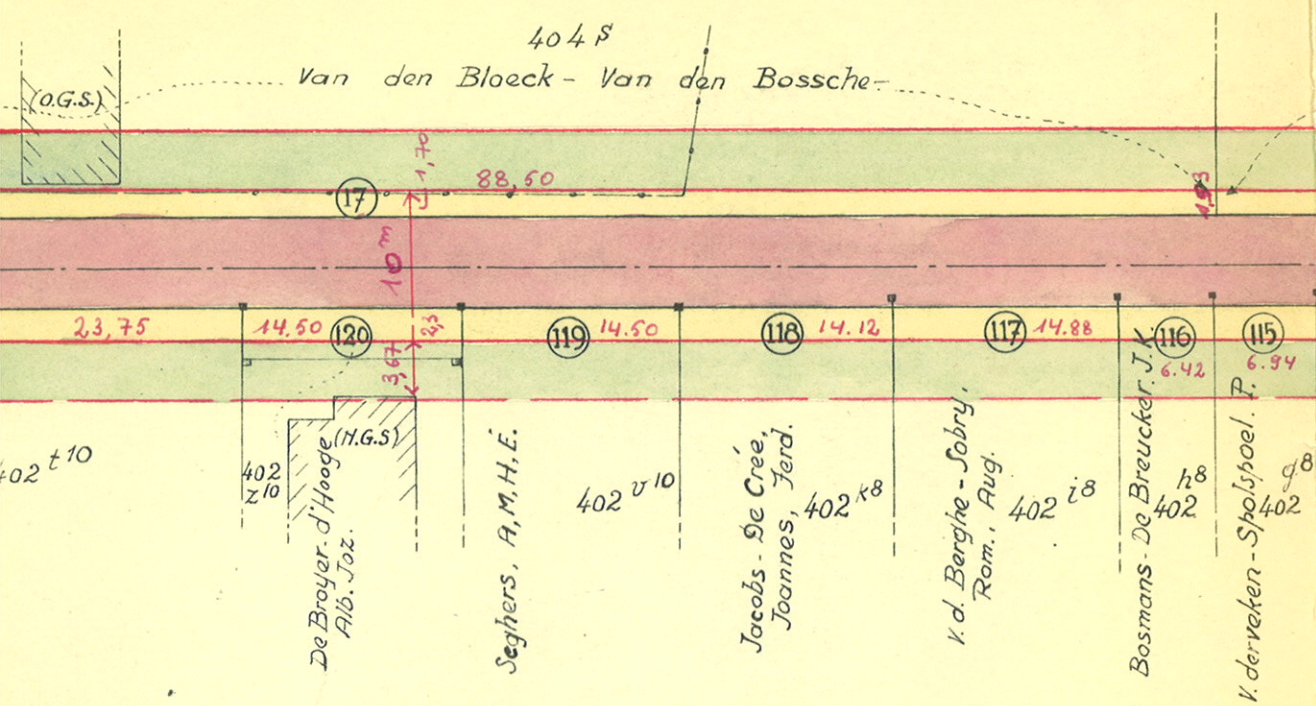 404 S
Van den Bloeck - Van den Bossche -
(O.G.S.)
1,70
88,50
17
10 m
23,75
14.50
120
2,3
3,67
119
14.50
118
14.12
117
14.88
116
6.42
115
6.94
402 t10
402 z10
(H.G.S)
De Broyer. d'Hooge
Alb. Joz.
Seghers, A, M, H, E.
402 v10
Jacobs - De Creé,
Joannes, Ferd.
402 k8
V. d. Berghe - Sobry.
Rom., Aug.
402 i8
Bosmans - De Breucker. J.K.
402 h8
V. derveken - Spolspoel. P.
402 g8